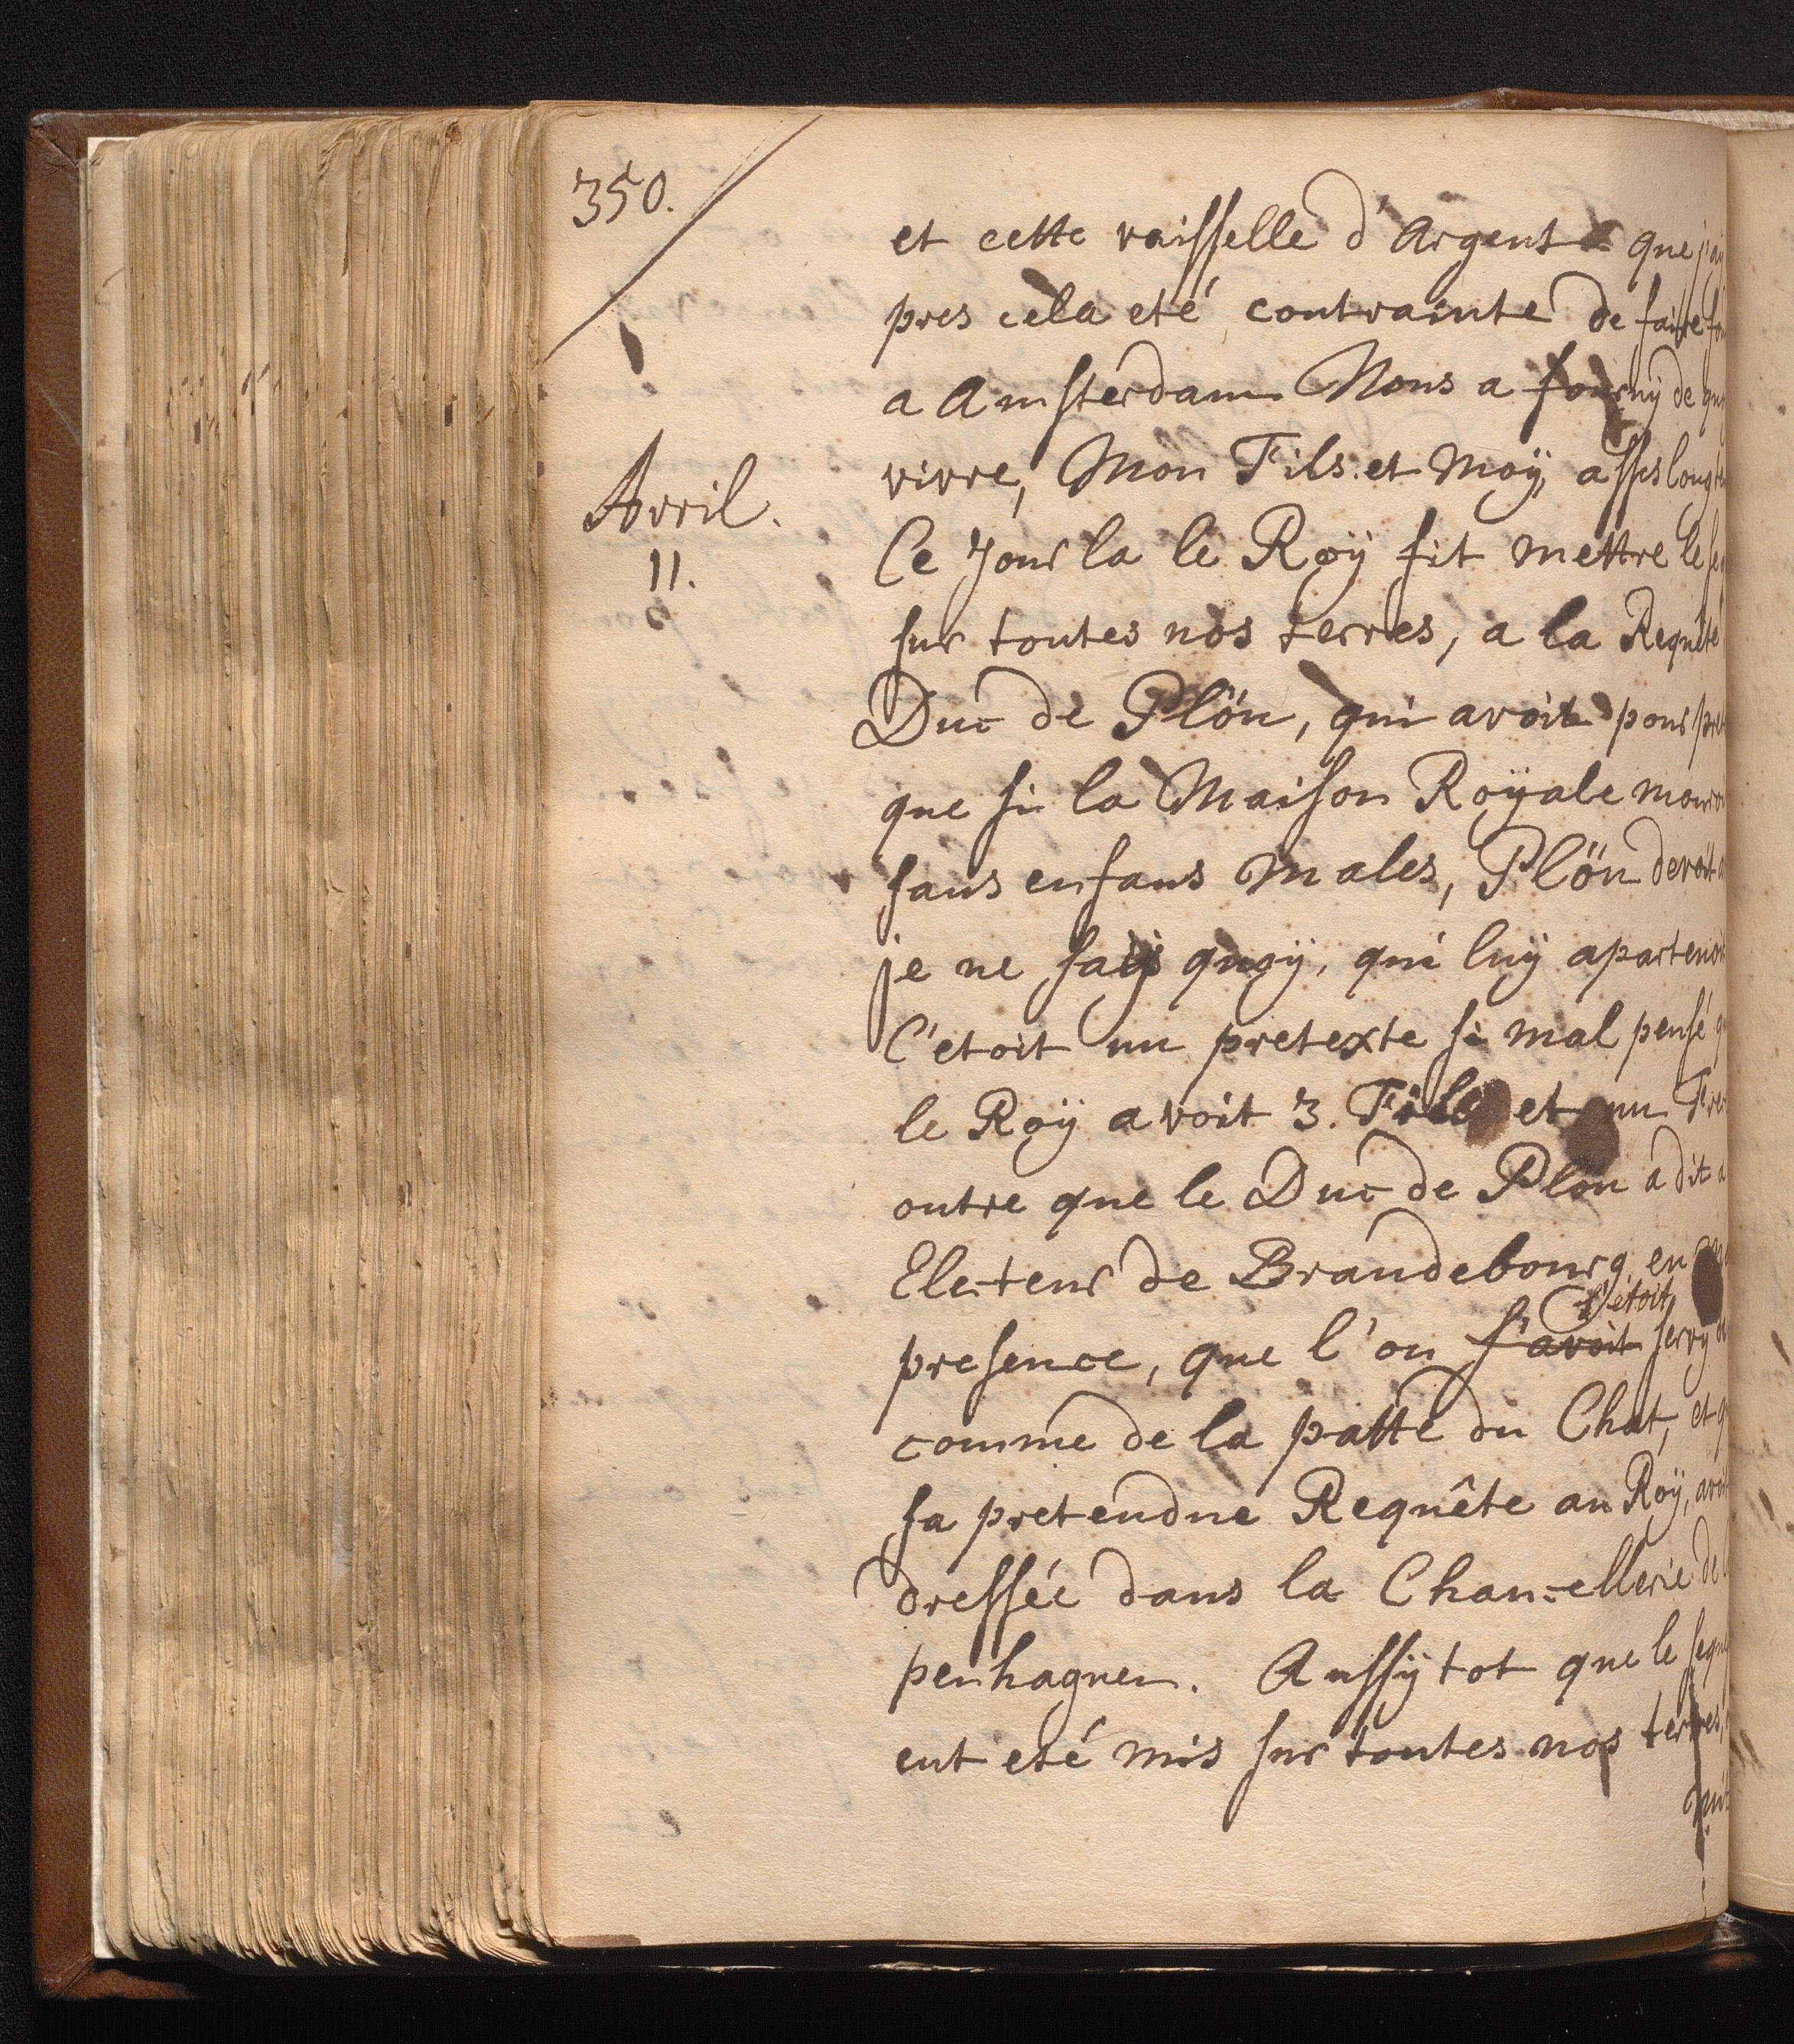 350.
et cette vaisselle d'Argent que j'ay
pres cela eté contrainte de faire
a Amsterdam Nous a fourny de
vivre, Mon Fils et Moÿ, asses
Avril.
11.
Ce Jour la le Roÿ fit mettre le
sur toutes nos terres, a la Requête
Duc de Plön, qui avoit pour
que si la Maison Roÿale
sans enfans Males, Plön devoit
je ne say quoÿ, qui luÿ
C'etoit un pretexte si mal pensé
le Roÿ avoit 3. Fils et un
outre que le Duc de Plön a dit
Electeur de Brandebourg en
s'étoit
presence, que l'on s'avoit servy
comme de la patte du Chat, et
sa pretendue Requête au Roÿ,
dressée dans la Chancellerie de
penhaguen. Aussÿtot que le
eut eté mis sur toutes nos terres,